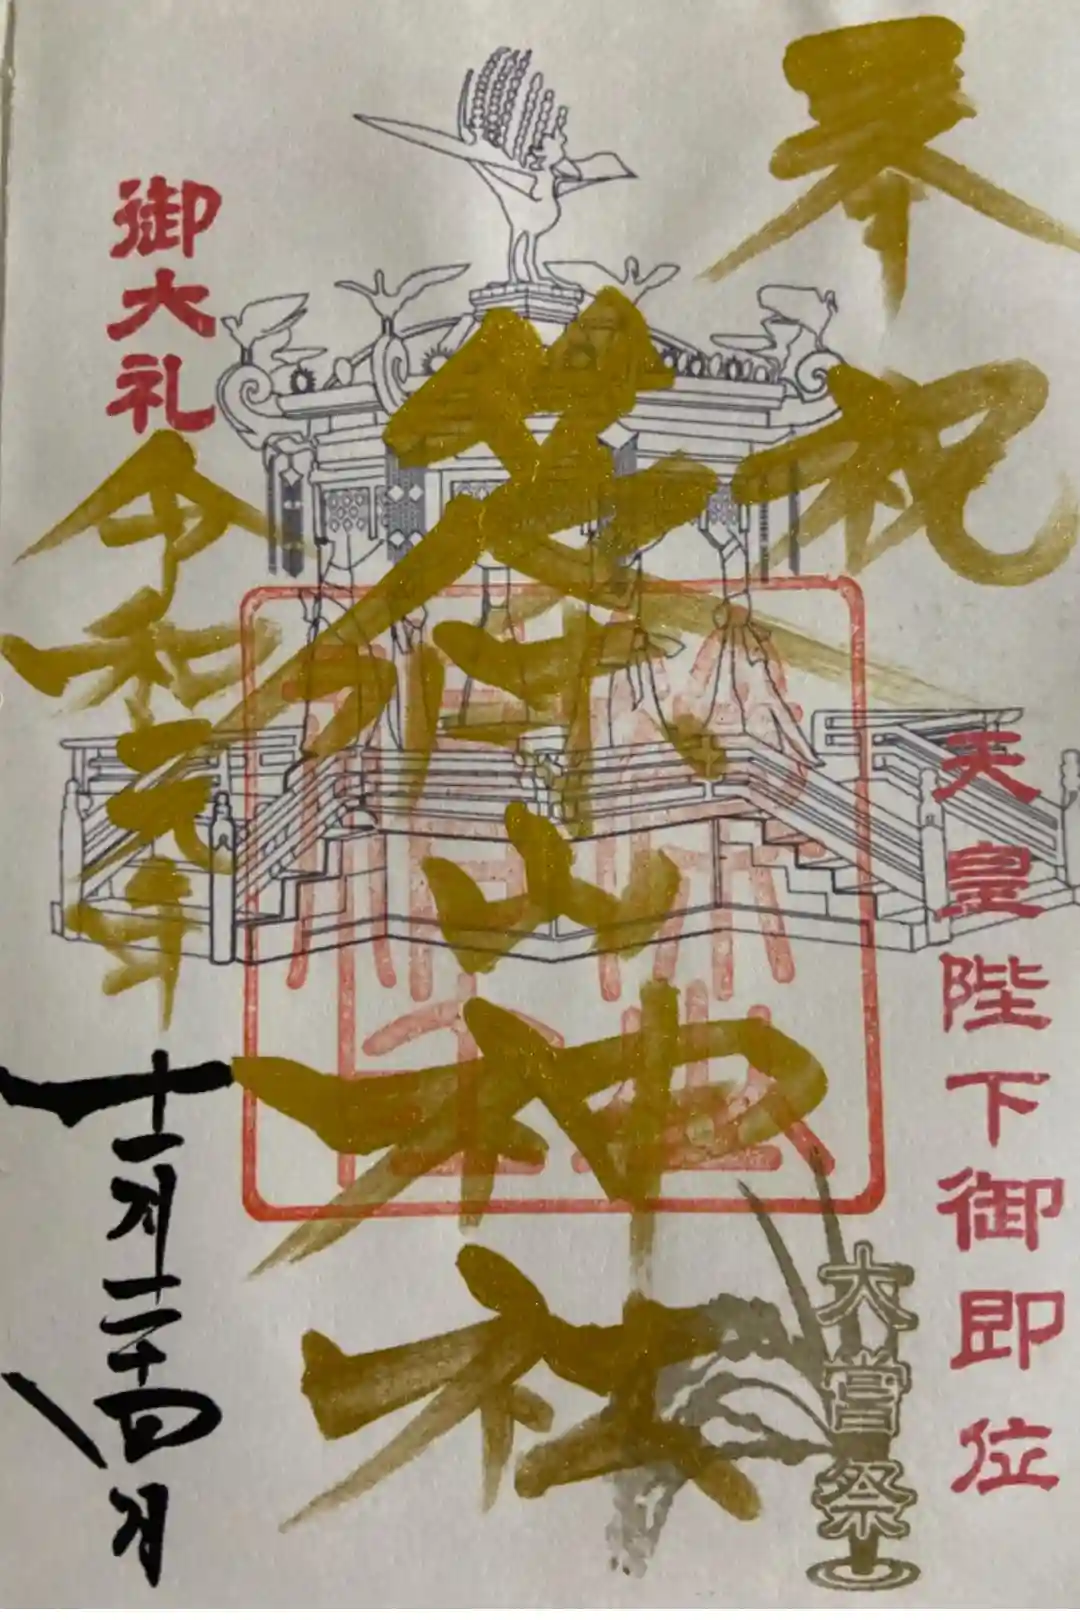 奉祝
天皇陛下御即位
大嘗祭
山神社
御大礼
令和元年
十一月二十四日